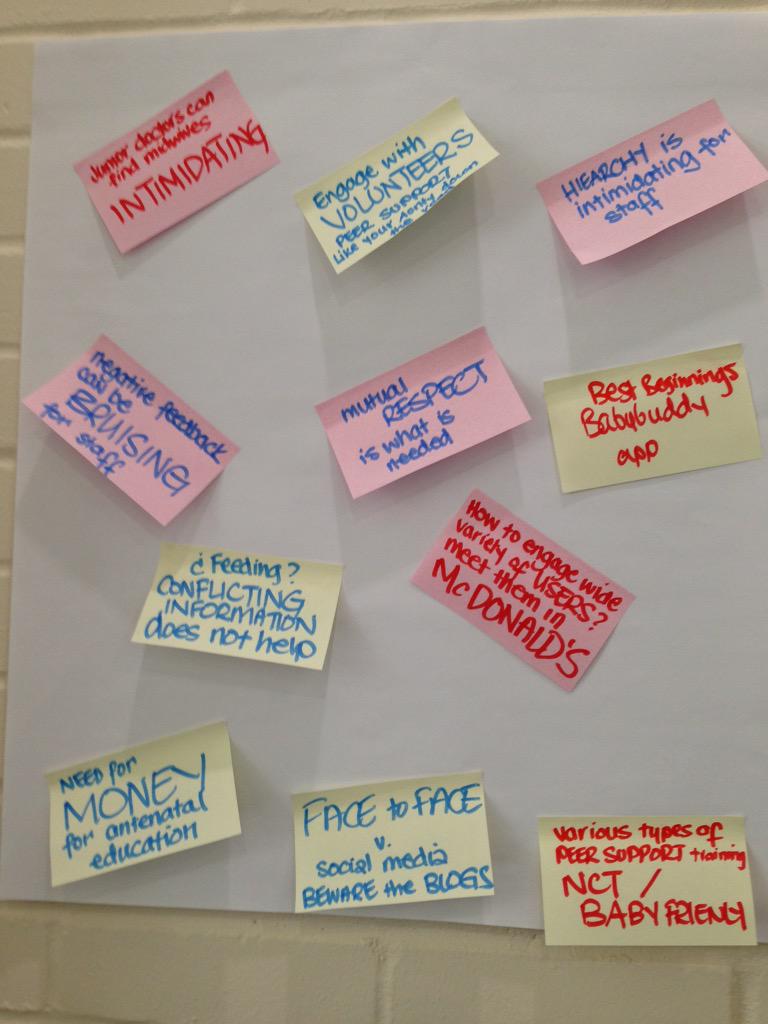 Junior doctors can
find midwives
INTIMIDATING
Engage with
VOLUNTEERS
PEER SUPPORT
Like your Aunty down
the
HIEARCHY is
intimidating for
staff
negative feedback
can be
BRUISING
for staff
mutual
RESPECT
is what is
needed
Best Beginnings
Babybuddy
app
¿ Feeding?
CONFLICTING
INFORMATION
does not help
How to engage wide
variety of USERS?
meet them in
McDONALD'S
NEED for
MONEY
for antenatal
education
FACE to FACE
v.
social media
BEWARE the BLOGS
various types of
PEER SUPPORT training
NCT /
BABY FRIENLY